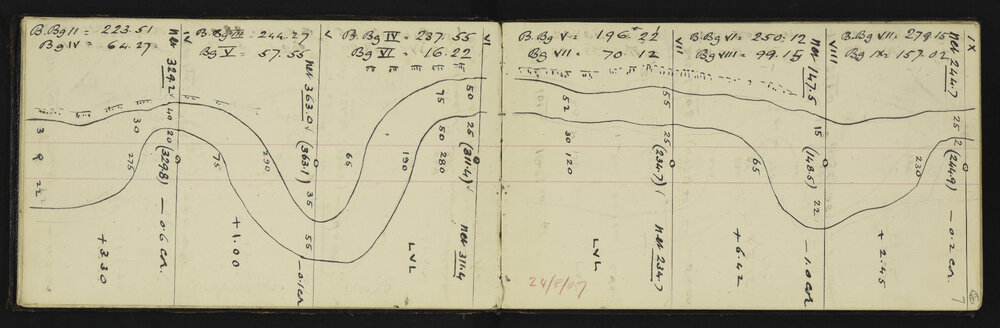 B.Bg II = 223.51
Bg IV = 64.27
ner 329.2 √
40
30
20
3
R
22
275
(329.8)
- 0.6 cor.
+ 3.30
IV
B.Bg III = 244.27
Bg V = 57.55
ner 363.0 √
75
290
(363.1)
35
55
- 0.1 cor
+ 1.00
V
B.Bg IV = 237.55
Bg VI = 16.22
65
190
75
50
280
50
25
(311.4) √
ner 311.4
LVL
VI
B.Bg V = 196.22
Bg VII = 70.12
52
30
120
55
25
(234.7) √
ner 234.7
LVL
24/8/07
VII
B.Bg VI = 250.12
Bg VIII = 99.15
ner 147.5
65
15
(148.5)
22
- 1.0 cor
+ 6.42
VIII
B.Bg VII = 279.15
Bg IX = 157.02
ner 244.7
IX
25
12
230
(244.9)
- 0.2 cor.
+ 2.45
7